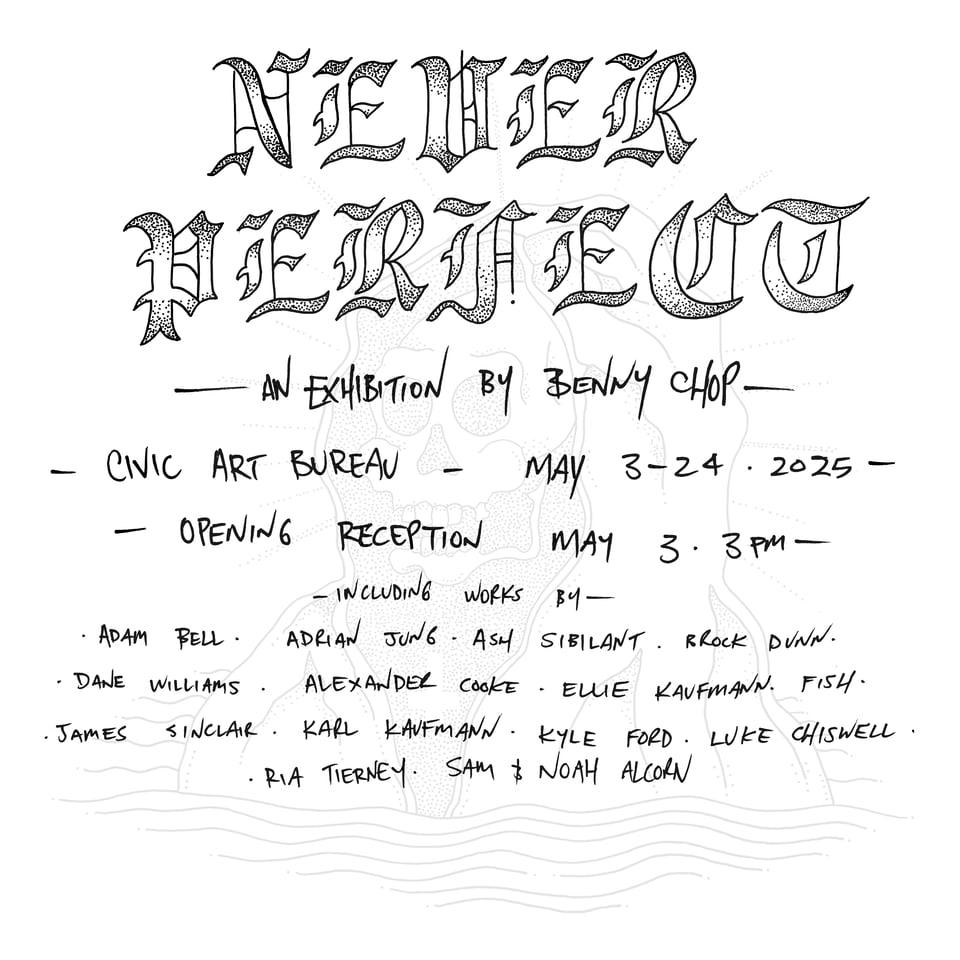 NEVER
PERFECT
— AN EXHIBITION BY BENNY CHOP —
— CIVIC ART BUREAU — MAY 3-24 · 2025 —
— OPENING RECEPTION MAY 3 · 3PM —
— INCLUDING WORKS BY —
· ADAM BELL · ADRIAN JUNG · ASH SIBILANT · BROCK DUNN ·
· DANE WILLIAMS · ALEXANDER COOKE · ELLIE KAUFMANN · FISH ·
· JAMES SINCLAIR · KARL KAUFMANN · KYLE FORD · LUKE CHISWELL ·
· RIA TIERNEY · SAM & NOAH ALCORN